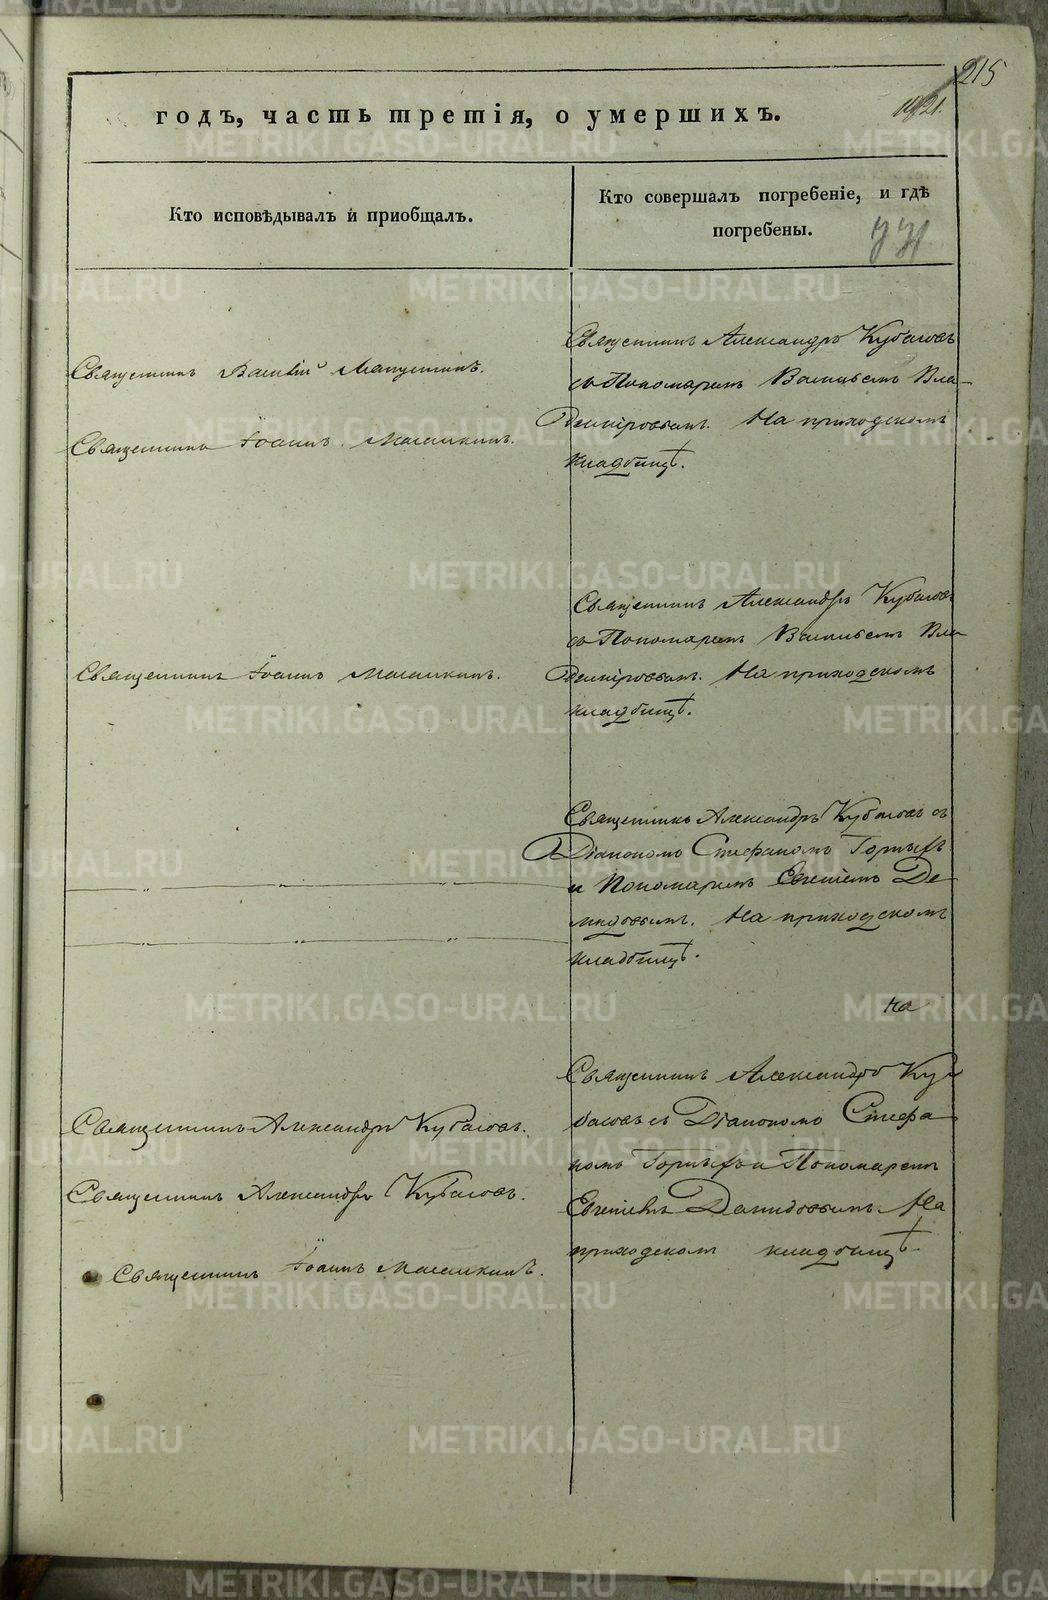 215
годъ, часть третія, о умершихъ.
Кто исповѣдывалъ и приобщалъ.
Кто совершалъ погребеніе, и гдѣ
погребены.
Священникъ Александръ Кубасовъ
Священникъ Василій
съ Пономаремъ Васильемъ Вла-
Священникъ Іоаннъ
димiровымъ. На приходскомъ
кладбищѣ.
Священникъ Александръ Кубасовъ
съ Пономаремъ Васильемъ Вла
Священникъ Іоаннъ
димiровымъ. На приходскомъ
кладбищѣ.
Священникъ Александръ Кубасовъ съ
Діакономъ Стефаномъ Горныхъ
и Пономаремъ Евгеніемъ Де
мидовымъ. На приходскомъ
кладбищѣ.
на
Священникъ Александръ Ку
Священникъ Александръ Кубасовъ.
басовъ съ Діакономъ Стефа
номъ Горныхъ и Пономаремъ
Священникъ Александръ Кубасовъ.
Евгеніемъ Демидовымъ. На
приходскомъ кладбищѣ.
Священникъ Іоаннъ
METRIKI.GASO-URAL.RU